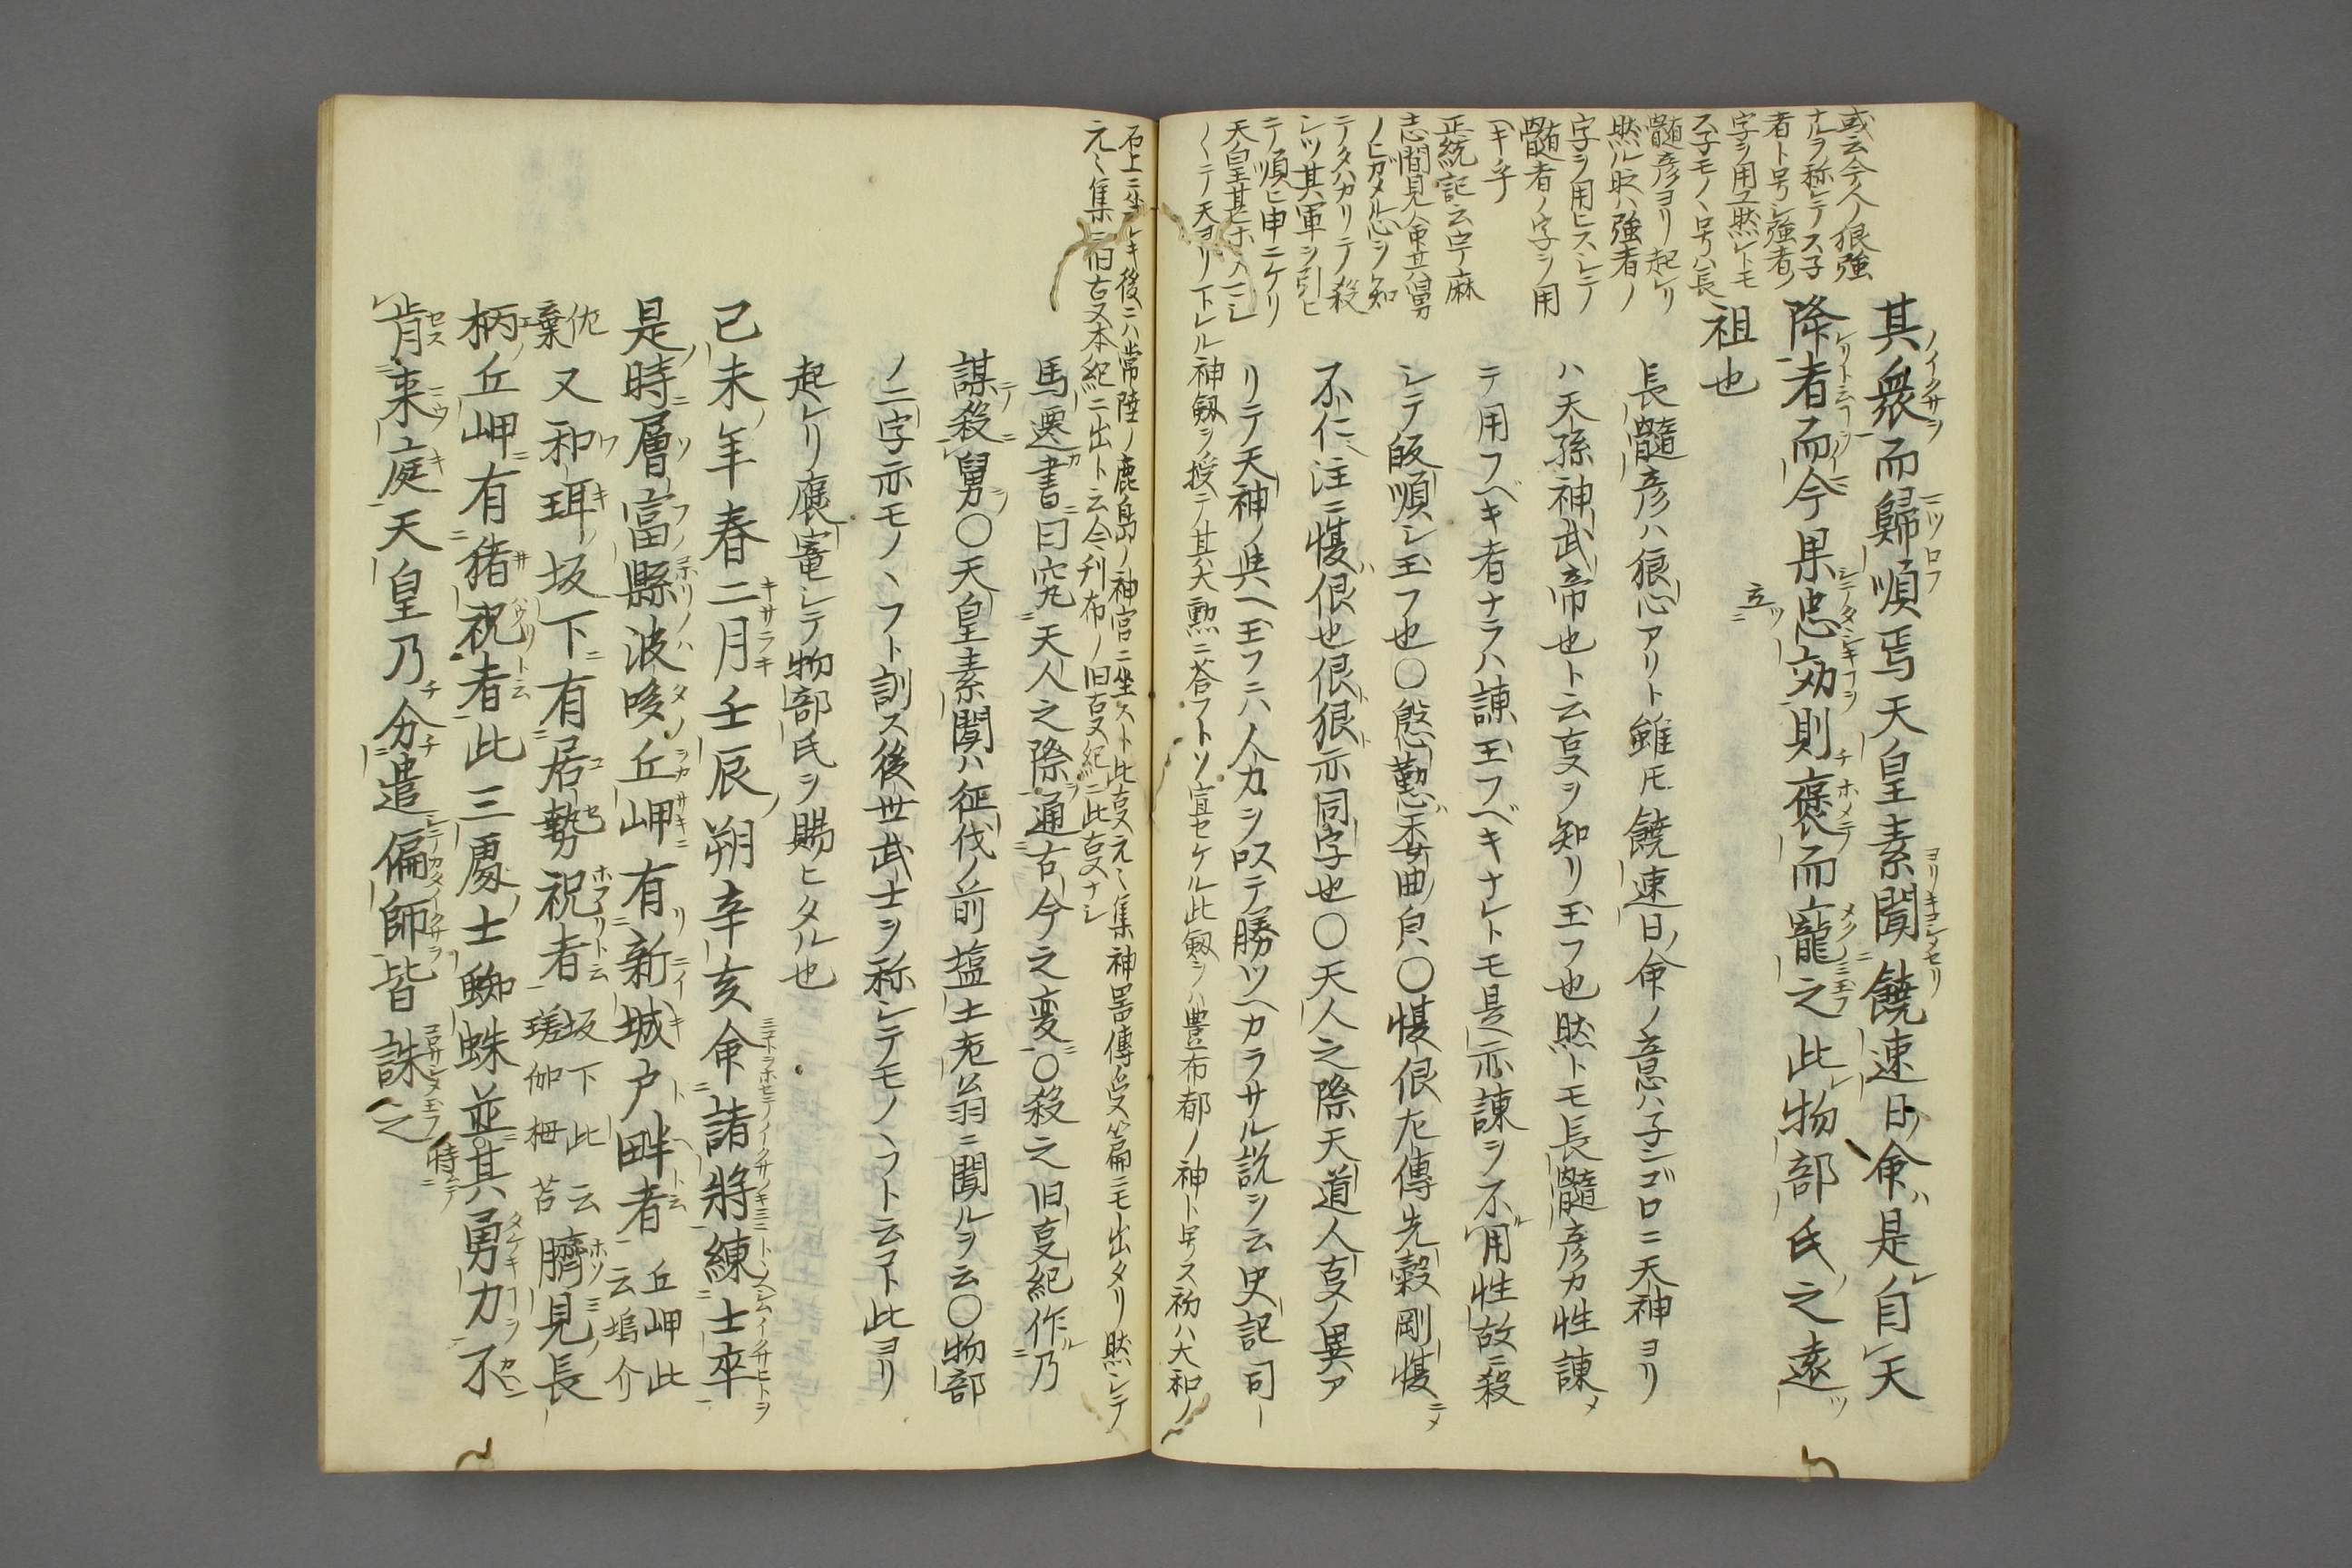 其衆而歸順焉天皇素聞饒速日命是自天
降者而今果立忠効則褒而寵之此物部氏之遠
祖也
長髓彦ハ狼心アリト雖モ饒速日命ノ意ハ子ンゴロニ天神ヨリ
ハ天孫神武帝也ト云夏ヲ知リ玉フ也然トモ長髓彦カ性諌メ
テ用フベキ者ナラハ諌玉フベキナレトモ是亦諌ヲ不用性故ニ殺
シテ皈順シ玉フ也〇慇懃禀曲貞〇愎佷左傳先縠剛愎ニメ
不仁注ニ愎ハ佷也佷ト狠ト亦同字也〇天人之際天道人夏ノ異ア
リテ天神ノ與ヘ玉フニハ人力ヲ以テ勝ツヘカラサル説ヲ云史記司
馬遷書曰究天人之際通古今之変〇殺之旧夏紀作乃
謀殺舅〇天皇素聞ハ征伐ノ前塩土老翁ニ聞ルヲ云〇物部
ノ二字亦モノヽフト訓ス後世武士ヲ称シテモノヽフト云コト此ヨリ
起レリ褒寵シテ物部氏ヲ賜ヒタル也
己未年春二月壬辰朔辛亥命諸將練士卒
是時層富縣波哆丘岬有新城戸畔者丘岬此云塢介佐棄
又和珥坂下有居勢祝者坂下此云瑳伽梅苔臍見長
柄丘岬有猪祝者此三處土蜘蛛並恃其勇力不
肯来庭天皇乃分遣偏師皆誅之
或云今人ノ狠強
ナルヲ称シテス子
者ト号シ強者ノ
字ヲ用ユ然レトモ
ス子モノヽ号ハ長
髓彦ヨリ起レリ
然ル𪜈ハ強者ノ
字ヲ用ヒスシテ
髓者ノ字ヲ用
ヘキ乎
正統記云宇麻
志間見命其舅
ノヒガメル心ヲ知
テタハカリテ殺
シツ其軍ヲ引ヒ
テ順ヒ申ニケリ
天皇其ヲホメマシ
〱テ天ヨリ下レル神劔ヲ授テ其大勲ニ荅フトソ宣セケル此劔ヲハ豊布都ノ神ト号ス初ハ大和ノ
石上ニ坐シキ後ニハ常陸ノ鹿島ノ神宮ニ坐スト此夏元〻集神器傳受篇ニモ出タリ然シテ
元〻集ニ旧古夏本紀ニ出ト云今刊布ノ旧古夏紀ニ此夏ナシ